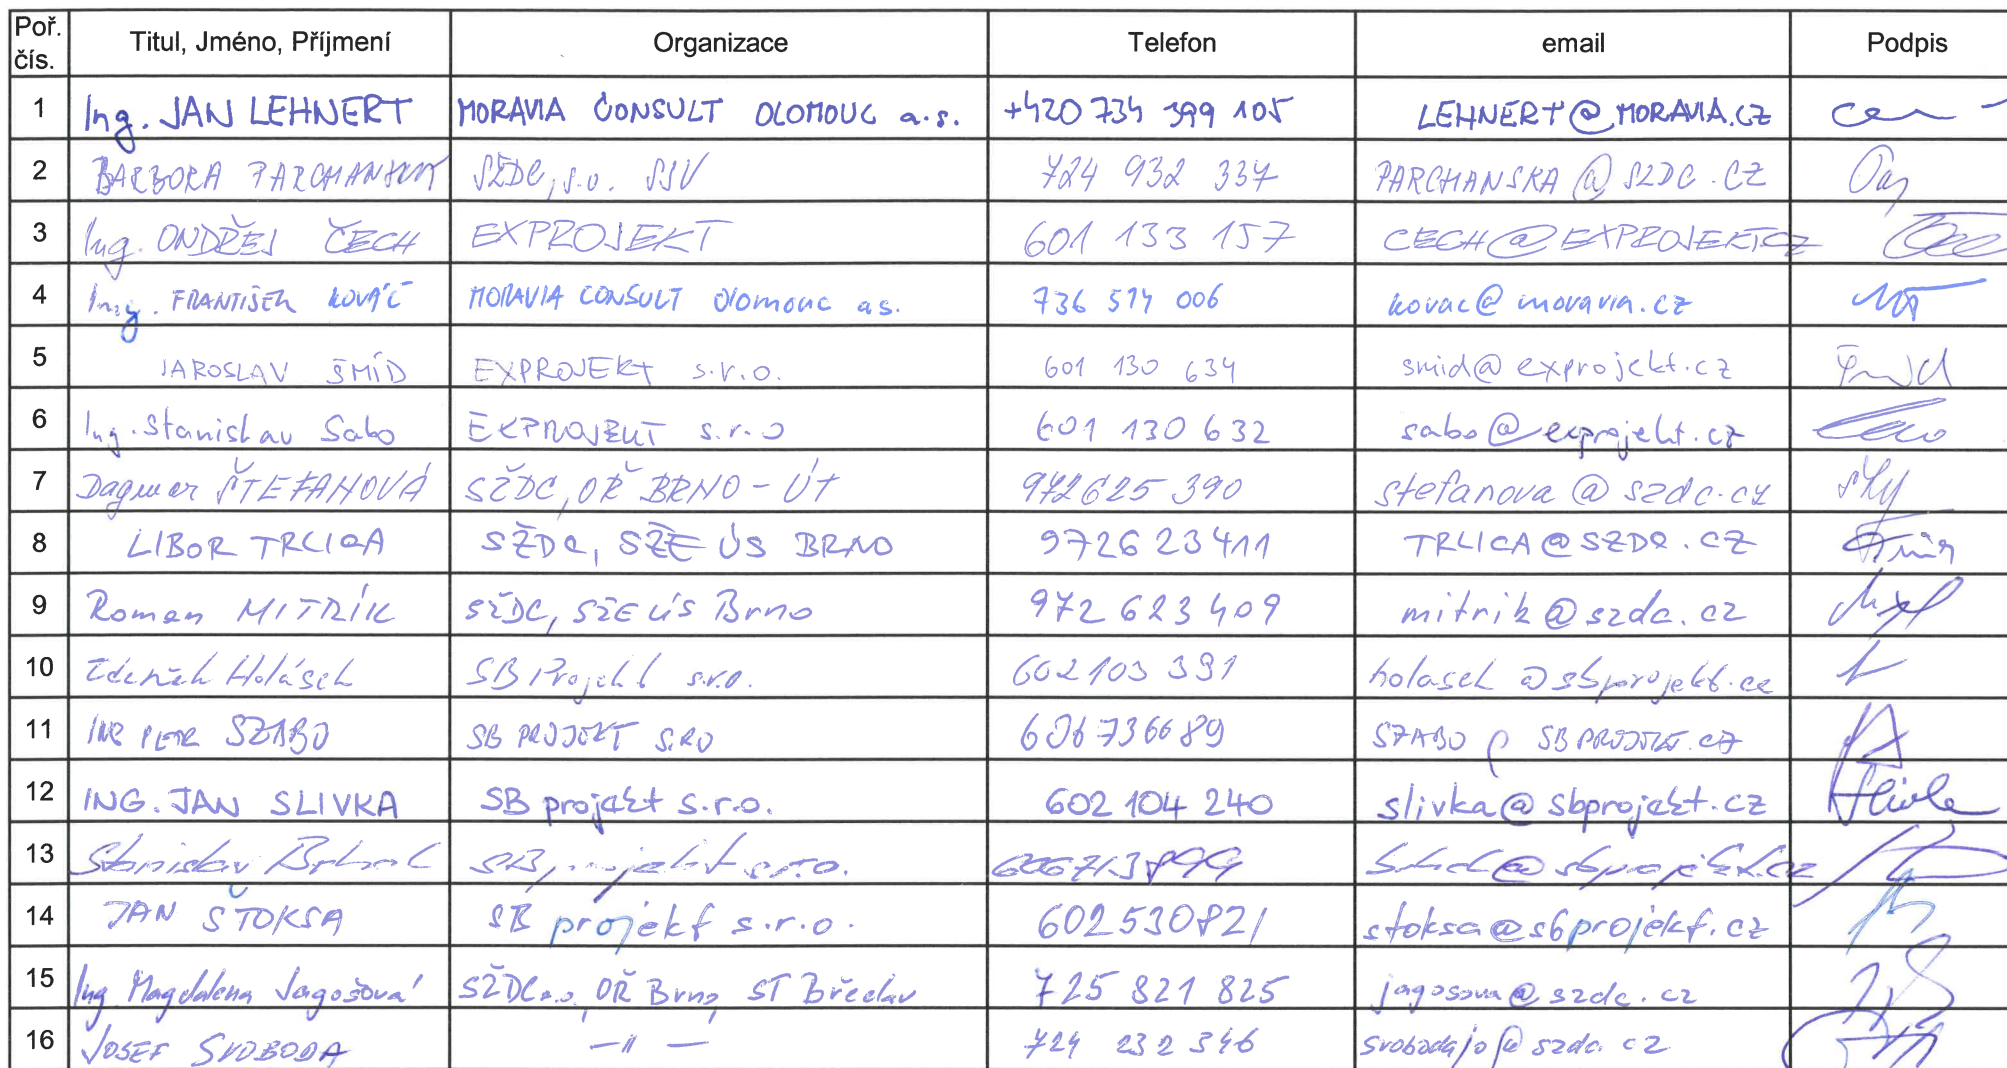 Poř. čís. Titul, Jméno, Příjmení Organizace Telefon email Podpis
1 Ing. JAN LEHNERT MORAVIA CONSULT OLOMOUC a.s. +420 734 399 105 LEHNERT@MORAVIA.CZ
2 BARBORA PARCHANSKÁ SŽDC, s.o. SSV 724 932 337 PARCHANSKA@SZDC.CZ
3 Ing. ONDŘEJ ČECH EXPROJEKT 601 133 157 CECH@EXPROJEKT.CZ
4 Ing. FRANTIŠEK KOVÁČ MORAVIA CONSULT Olomouc a.s. 736 514 006 kovac@moravia.cz
5 JAROSLAV ŠMÍD EXPROJEKT s.r.o. 601 130 634 smid@exprojekt.cz
6 Ing. Stanislav Sabo EXPROJEKT s.r.o 601 130 632 sabo@exprojekt.cz
7 Dagmar ŠTEFANOVÁ SŽDC, OŘ BRNO - ÚT 972625 390 stefanova@szdc.cz
8 LIBOR TRLICA SŽDC, SŽE ÚS BRNO 972623411 TRLICA@SZDC.CZ
9 Roman MITRÍK SŽDC, SŽE ÚS Brno 972 623 409 mitrik@szdc.cz
10 Zdeněk Holásek SB Projekt s.r.o. 602103 391 holasek@sbprojekt.cz
11 ING PETR SZABO SB PROJEKT S.R.O 606736689 SZABO@SBPROJEKT.CZ
12 ING. JAN SLIVKA SB projekt s.r.o. 602 104 240 slivka@sbprojekt.cz
13 Stanislav SB projekt s.r.o. 606713899
14 JAN ŠTOKSA SB projekt s.r.o. 602530821 stoksa@sbprojekt.cz
15 Ing Magdalena Jagošová SŽDC s.o., OŘ Brno, ST Břeclav 725 821 825 jagosova@szdc.cz
16 JOSEF SVOBODA -"- 724 232 346 svobodajo@szdc.cz